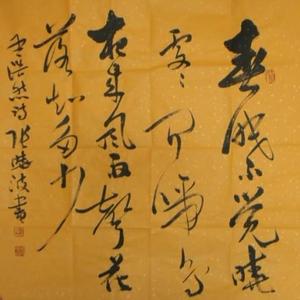 春眠不觉晓
处处闻啼鸟
夜来风雨声花
落知多少
孟浩然诗 张晓波书